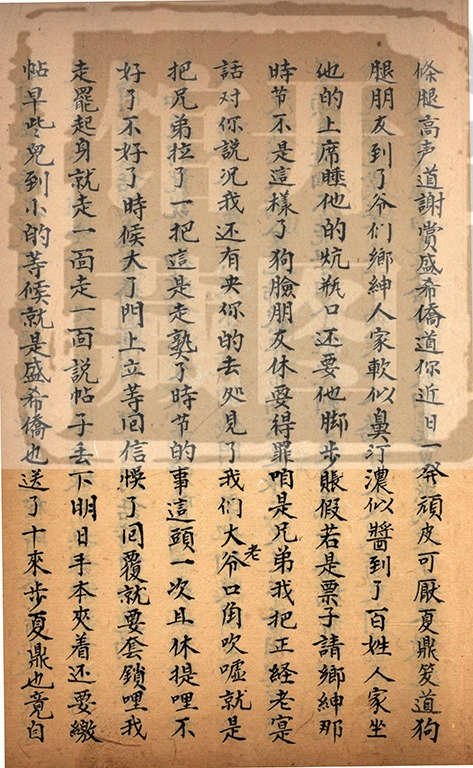 條腿高声道謝賞盛希僑道你近日一発頑皮可厭夏鼎笑道狗
腿朋友到了爷们鄉紳人家軟似鼻汀濃似醬到了百姓人家坐
他的上席睡他的炕瓶口还要他脚步賬假若是票子請鄉紳那
時节不是這樣了狗臉朋友休要得罪咱是兄弟我把正経老寔
話对你説况我还有央你的去処見了我们大老爷口角吹噓就是
把兄弟拉了一把這是走熟了時节的事這頭一次且休提哩不
好了不好了時候大了門上立等回信悞了回覆就要套鎖哩我
走罷起身就走一面走一面説帖子丢下明日手本夾着还要繳
帖早些兒到小的等候就是盛希僑也送了十來步夏鼎也竟自